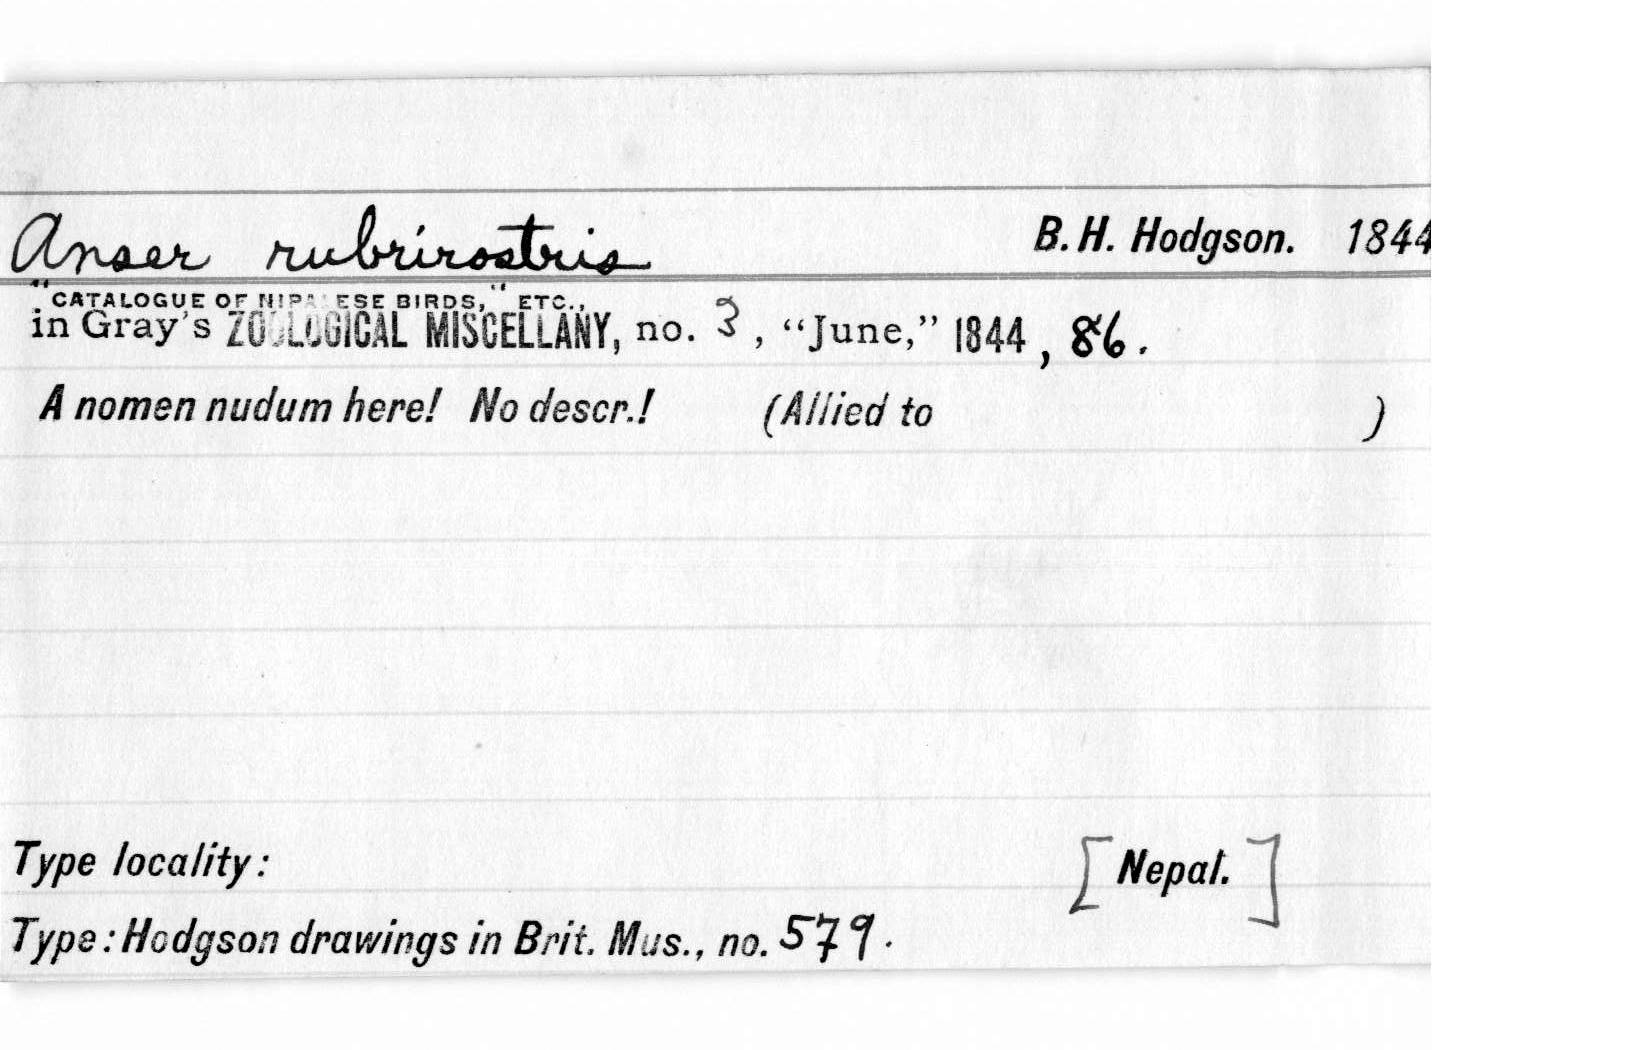 Anser rubrirostris B. H. Hodgson. 1844
"CATALOGUE OF NIPALESE BIRDS," ETC.,
in Gray's ZOOLOGICAL MISCELLANY, no. 3, "June," 1844, 86.
A nomen nudum here! No descr.! (Allied to )
Type locality: [Nepal.]
Type: Hodgson drawings in Brit. Mus., no. 579.